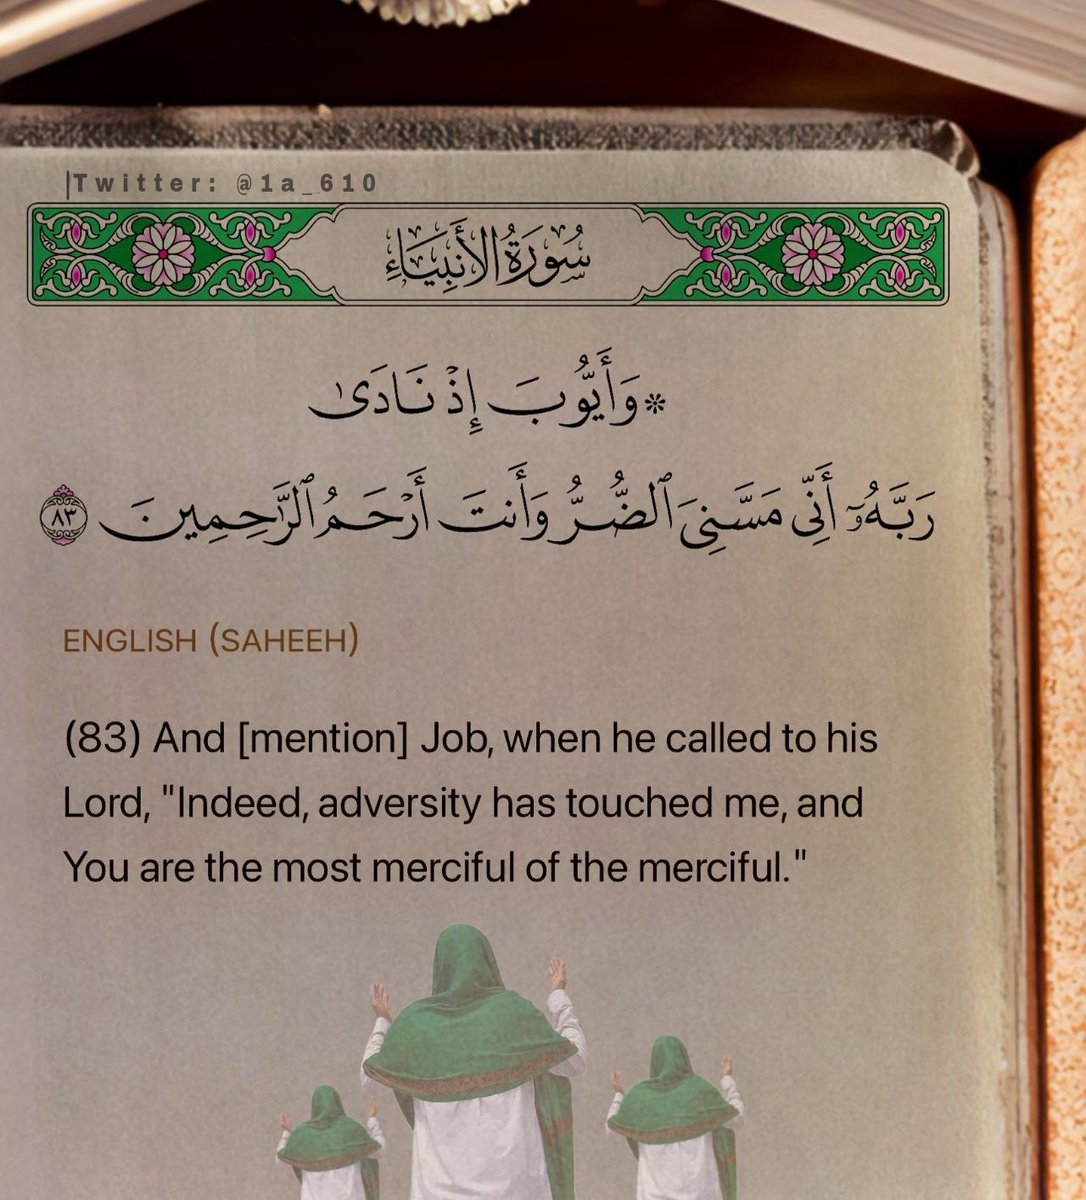 |Twitter: @1a_610
سُورَةُ الأَنبِيَاءِ
* وَأَيُّوبَ إِذْ نَادَىٰ
رَبَّهُۥٓ أَنِّى مَسَّنِىَ ٱلضُّرُّ وَأَنتَ أَرْحَمُ ٱلرَّٰحِمِينَ ٨٣
ENGLISH (SAHEEH)
(83) And [mention] Job, when he called to his
Lord, "Indeed, adversity has touched me, and
You are the most merciful of the merciful."